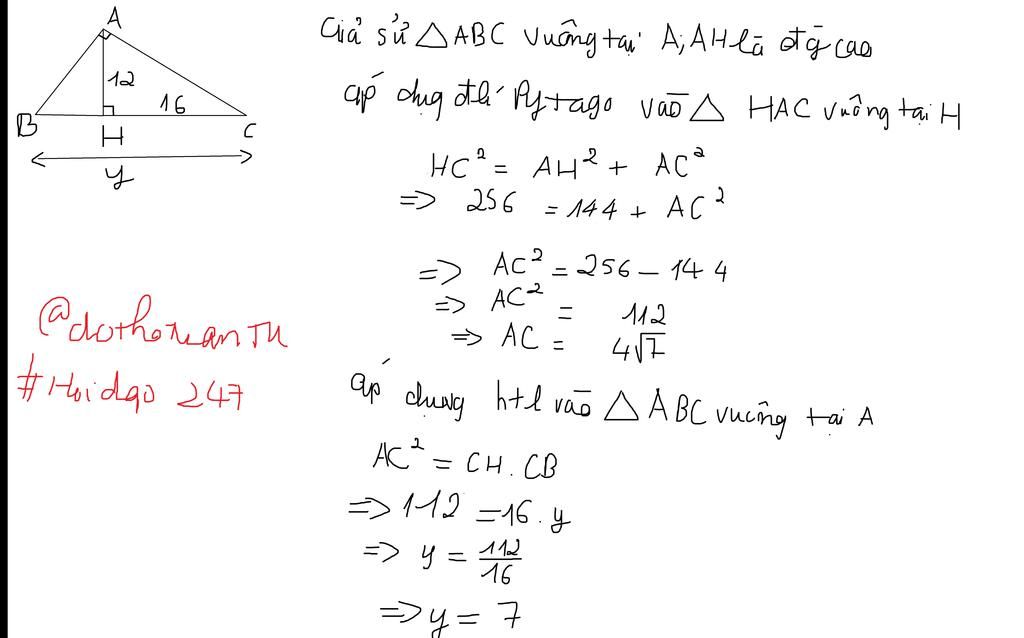 A
12
16
B
H
C
y
Giả sử △ABC vuông tại A; AH là đg cao
áp dụg đlí Pytago vào △ HAC vuông tại H
HC² = AH² + AC²
=> 256 = 144 + AC²
=> AC² = 256 - 144
=> AC² = 112
=> AC = 4√7
áp dụng htl vào △ ABC vuông tại A
AC² = CH. CB
=> 112 = 16. y
=> y = 112/16
=> y = 7
@dothoxuanTH
#Hoidap 247